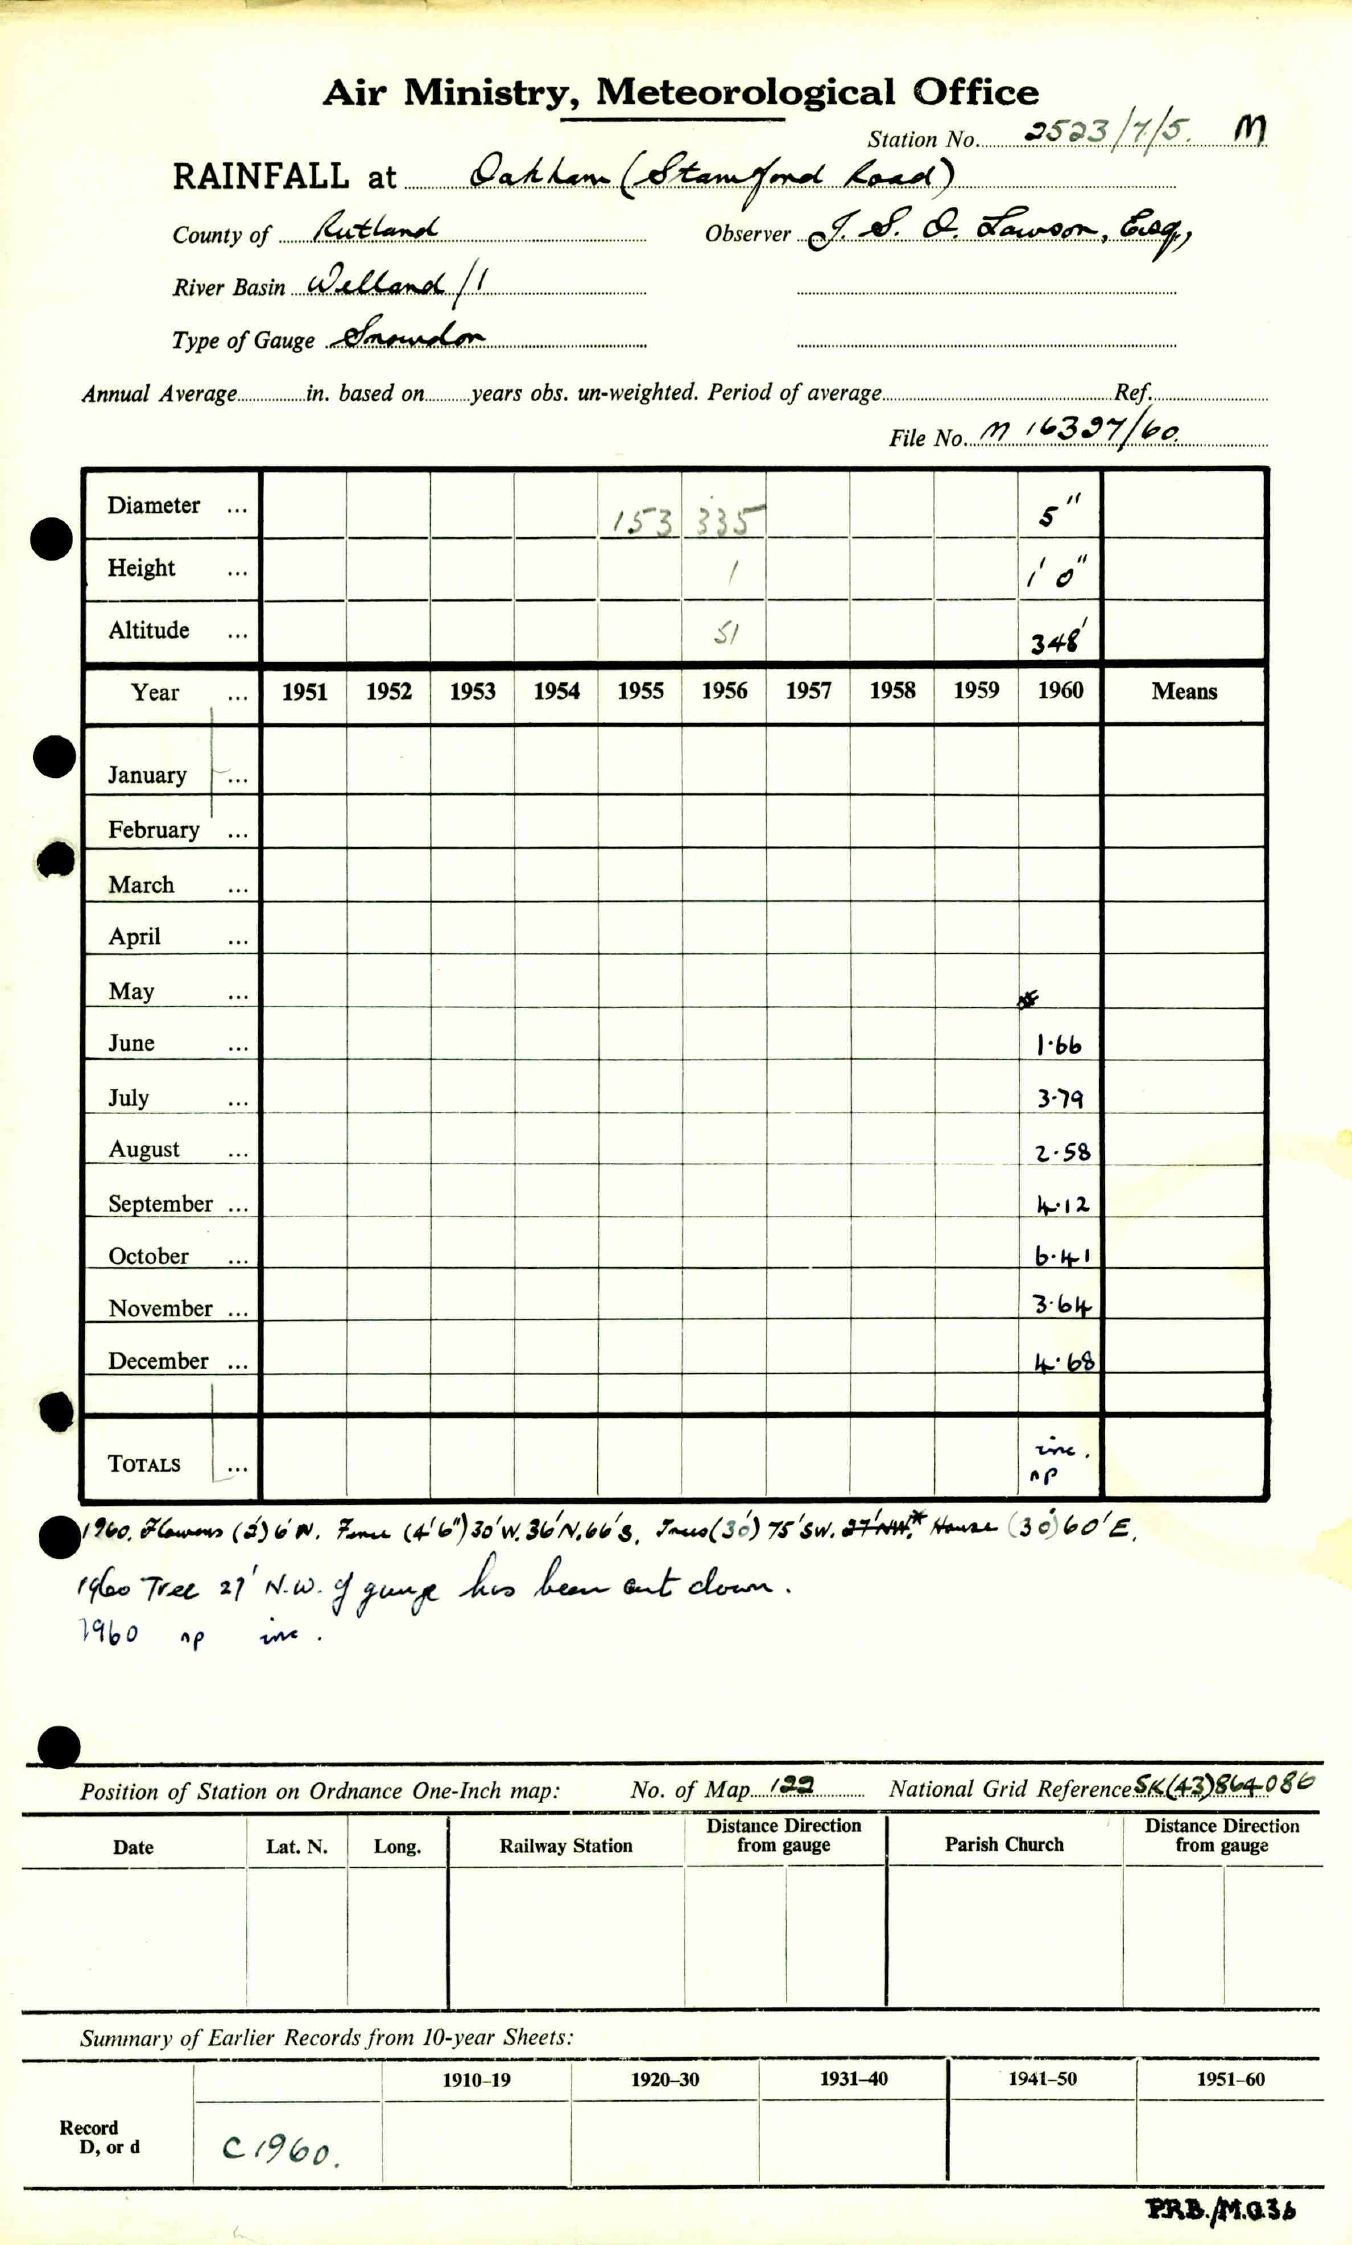 Air Ministry, Meteorological Office
Station No. 2523/7/5. M
RAINFALL at Oakham (Stamford Road)
County of Rutland Observer J. S. O. Lawson, Esq,
River Basin Welland/1
Type of Gauge Snowdon
Annual Average in. based on years obs. un-weighted. Period of average Ref.
File No. M 16327/60.
Diameter ... 153 335 5"
Height ... 1 1' 0"
Altitude ... 51 348'
Year ... 1951 1952 1953 1954 1955 1956 1957 1958 1959 1960 Means
January ...
February ...
March ...
April ...
May ...
June ... 1·66
July ... 3·79
August ... 2·58
September ... 4·12
October ... 6·41
November ... 3·64
December ... 4·68
TOTALS ... inc.
np
1960. Flowers (2') 6'N. Fence (4'6") 30'W. 36'N. 66'S. Trees (30') 75'SW. 27'NW.* House (30') 60'E.
1960 Tree 27' N.W. of gauge has been cut down.
1960 np inc.
Position of Station on Ordnance One-Inch map: No. of Map 122 National Grid Reference SK(43)864086
Date Lat. N. Long. Railway Station Distance Direction from gauge Parish Church Distance Direction from gauge
Summary of Earlier Records from 10-year Sheets:
1910–19 1920–30 1931–40 1941–50 1951–60
Record
D, or d C 1960.
P.R.B./M.O.36